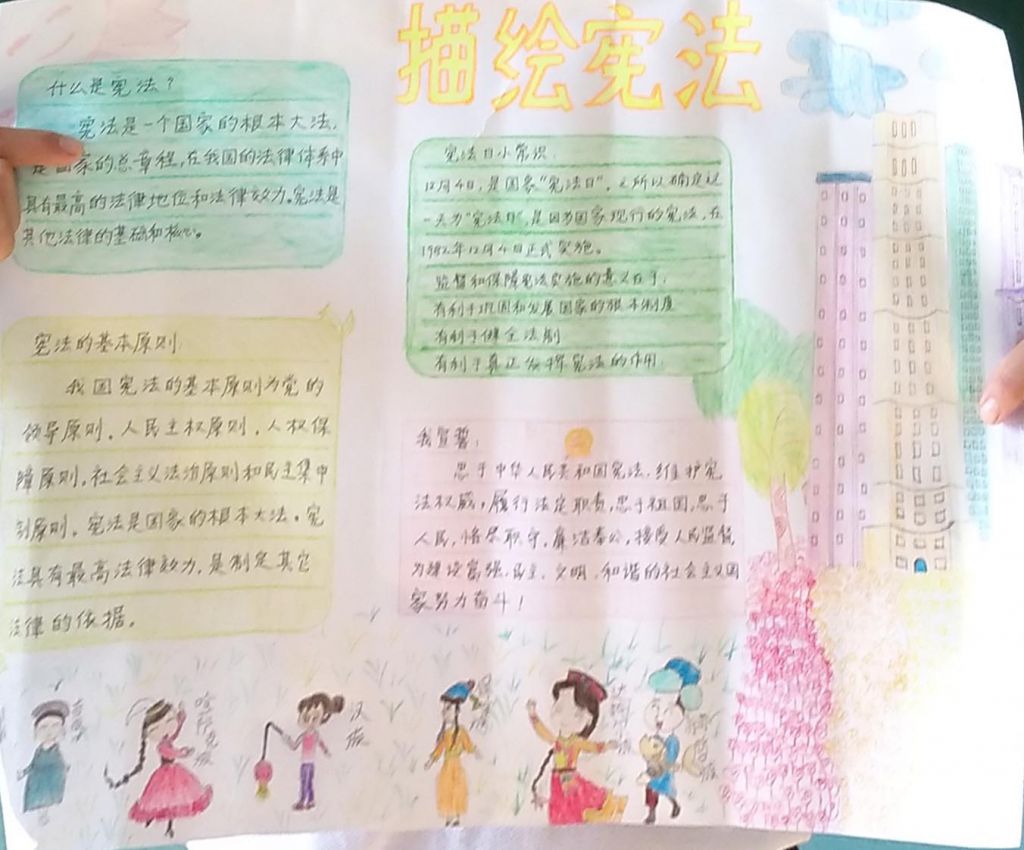 描绘宪法
什么是宪法？
宪法是一个国家的根本大法，
是国家的总章程，在我国的法律体系中
具有最高的法律地位和法律效力。宪法是
其他法律的基础和核心。
宪法日小常识
12月4日，是国家“宪法日”，之所以确定这
一天为“宪法日”，是因为国家现行的宪法，在
1982年12月4日正式实施。
监督和保障宪法实施的意义在于：
有利于巩固和发展国家的根本制度
有利于健全法制
有利于真正发挥宪法的作用
宪法的基本原则
我国宪法的基本原则为党的
领导原则，人民主权原则，人权保
障原则，社会主义法治原则和民主集中
制原则。宪法是国家的根本大法。宪
法具有最高法律效力，是制定其它
法律的依据。
我宣誓：
忠于中华人民共和国宪法，维护宪
法权威，履行法定职责，忠于祖国，忠于
人民，恪尽职守，廉洁奉公，接受人民监督，
为建设富强、民主、文明、和谐的社会主义国
家努力奋斗！
汉族